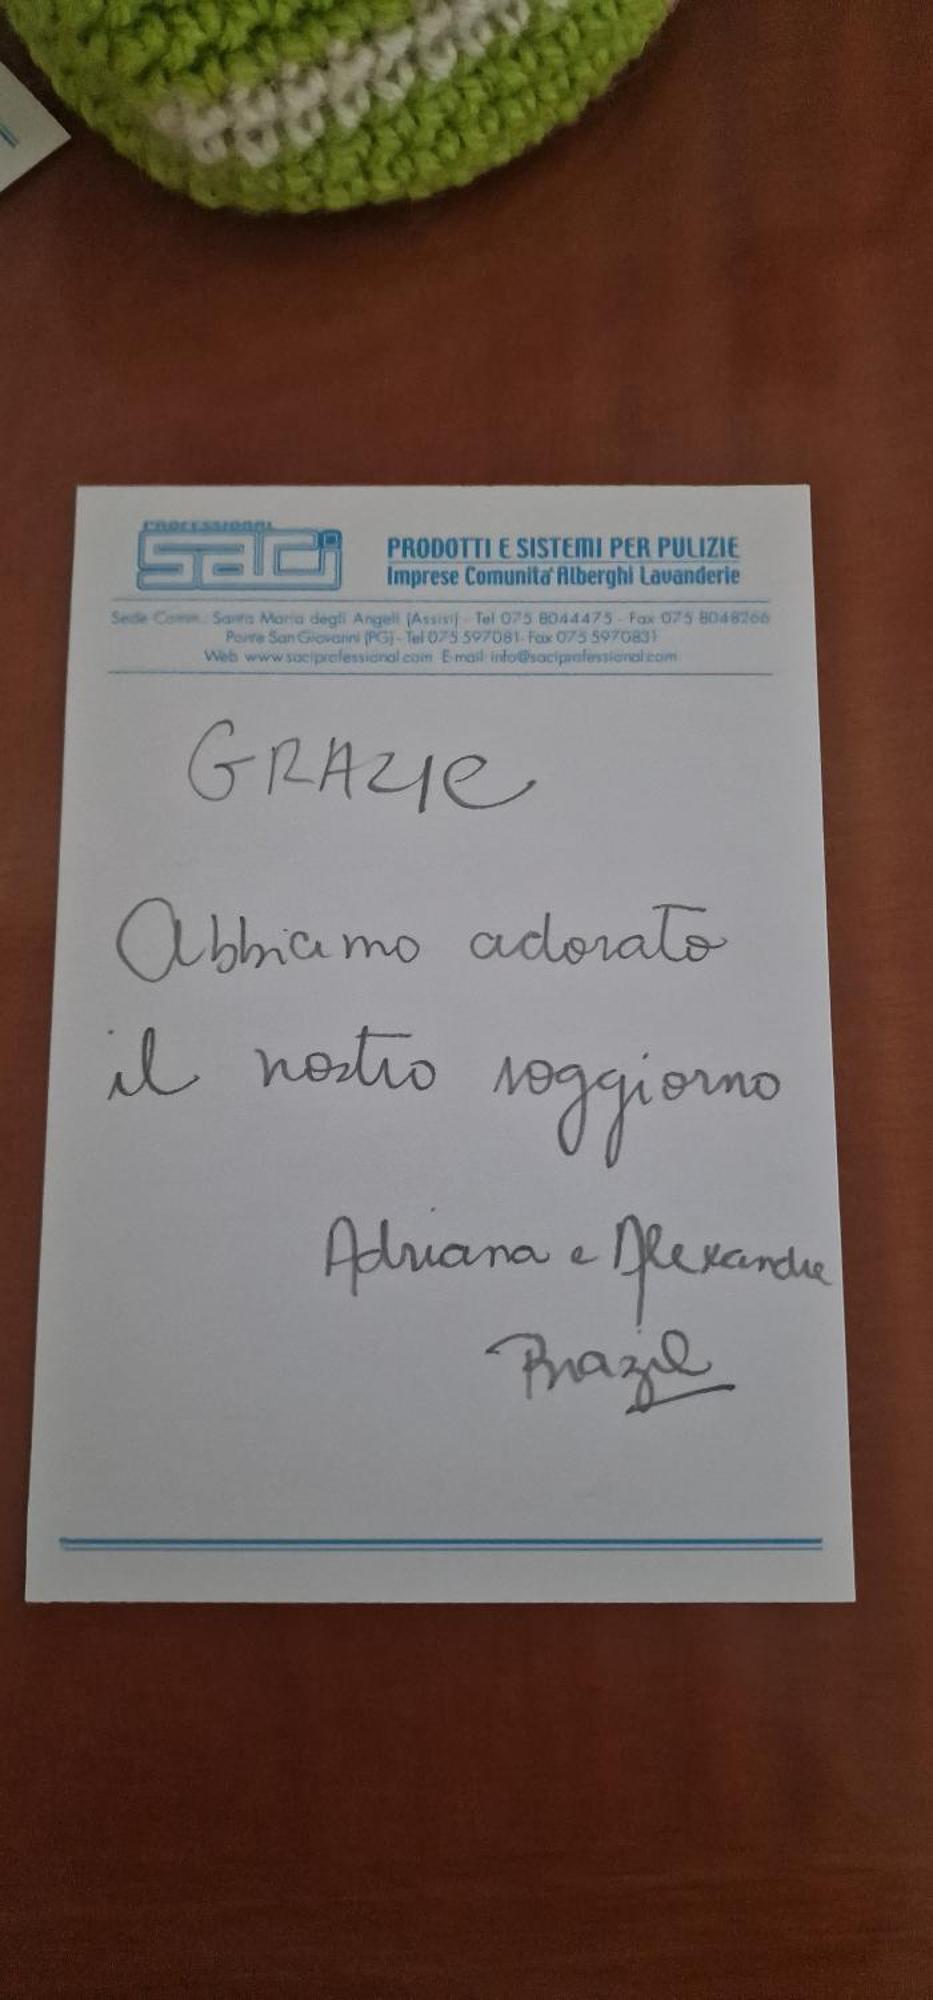 PROFESSIONAL
saci
PRODOTTI E SISTEMI PER PULIZIE
Imprese Comunita' Alberghi Lavanderie
Sede Comm.: Santa Maria degli Angeli (Assisi) - Tel 075 8044475 - Fax 075 8048266
Ponte San Giovanni (PG) - Tel 075 597081- Fax 075 5970831
Web www.saciprofessional.com E-mail info@saciprofessional.com
GRAZIE
Abbiamo adorato
il nostro soggiorno
Adriana e Alexandre
Brazil